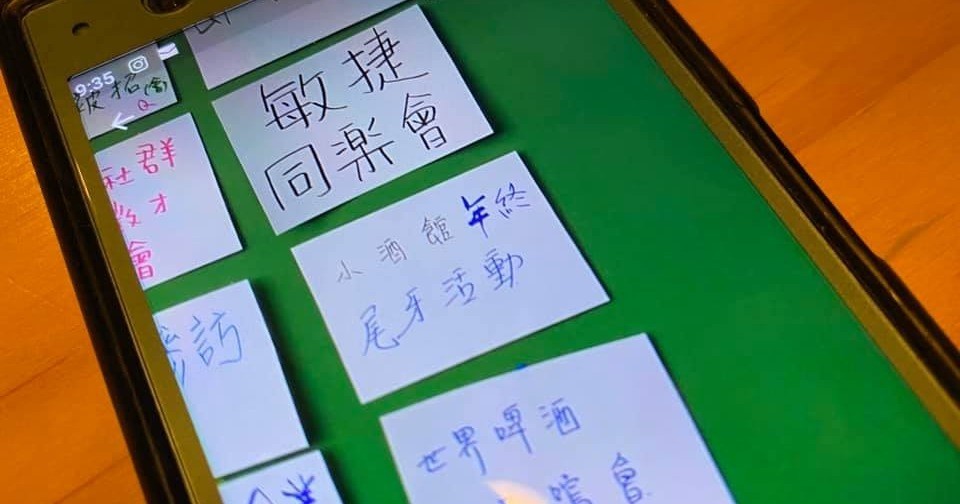 9:35
敏捷
同楽會
社群
教才
會
小酒館年終
尾牙活動
參訪
世界啤酒